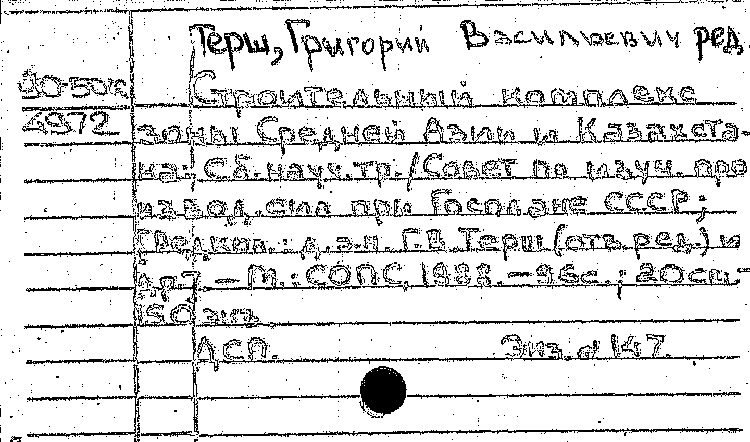 Терш, Григорий Василиевич ред.
90-50к Строительный комплекс
4972 зоны Средней Азии и Казахста-
на: Сб. науч. тр. /Совет по изуч. про
извод. сил при Госплане СССР;
[Редкол.: д.э.н. Г.В. Терш (отв. ред.) и
др.]. — М.: СОПС, 1988. — 96с.; 20см.-
150 экз.
ДСП. Экз. № 147.